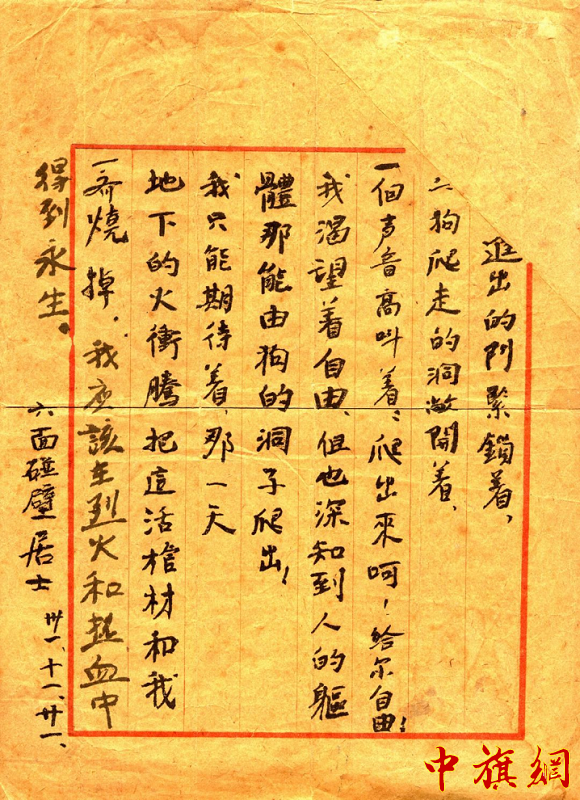 進出的門緊鎖着、
狗爬走的洞敞開着、
一個声音高叫着：爬出來呵！給尔自由！
我渴望着自由、但也深知到人的軀
體那能由狗的洞子爬出！
我只能期待着、那一天
地下的火衝騰把這活棺材和我
一齊燒掉，我應該在烈火和热血中
得到永生。
六面碰壁居士 卅一、十一、廿一、
中旗網